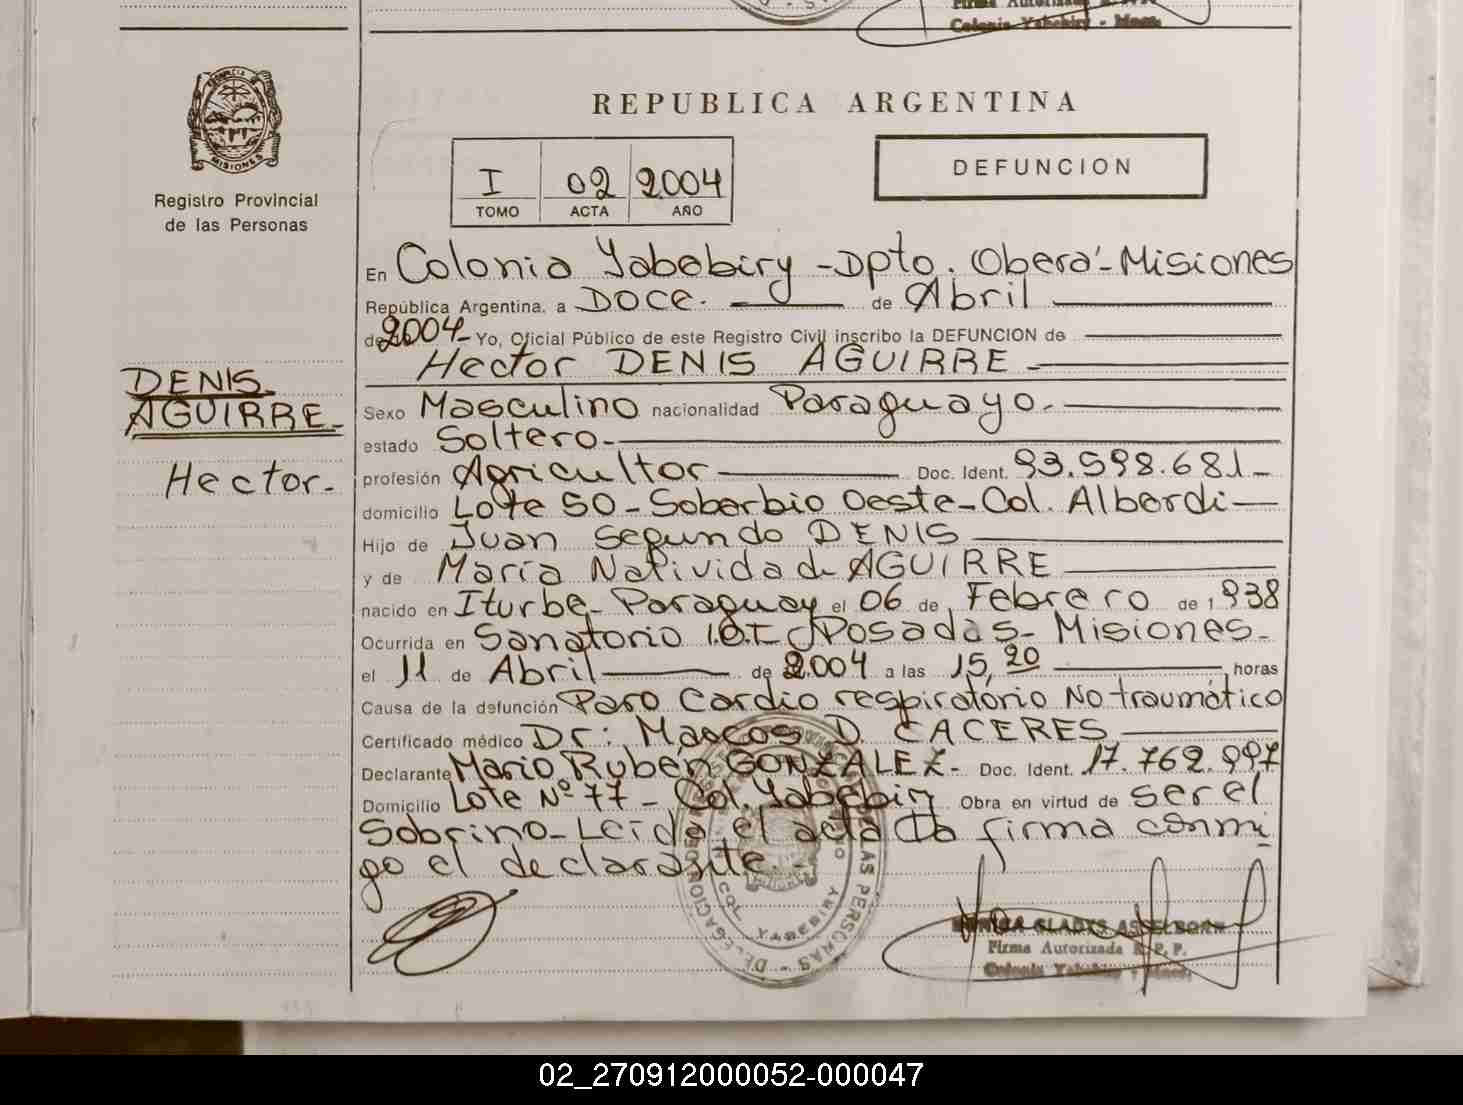 Colonia Yabebiry - Mnes.
REPUBLICA ARGENTINA
PROVINCIA DE
MISIONES
Registro Provincial
de las Personas
I 02 2004
TOMO ACTA AÑO
DEFUNCION
En Colonia Yabebiry - Dpto. Oberá - Misiones
República Argentina, a Doce. de Abril
de 2004 - Yo, Oficial Público de este Registro Civil inscribo la DEFUNCION de
Hector DENIS AGUIRRE -
DENIS
AGUIRRE -
Hector -
Sexo Masculino nacionalidad Paraguayo. -
estado Soltero -
profesión Agricultor Doc. Ident. 93.598.681 -
domicilio Lote 50 - Soberbio Oeste - Col. Alberdi -
Hijo de Juan Segundo DENIS
y de María Natividad AGUIRRE
nacido en Iturbe - Paraguay el 06 de Febrero de 1938
Ocurrida en Sanatorio I.O.T. Posadas - Misiones -
el 11 de Abril de 2.004 a las 15,20 horas
Causa de la defunción Paro Cardio respiratorio No traumático
Certificado médico Dr: Marcos D. CACERES
Declarante Mario Rubén GONZALEZ - Doc. Ident. 17.762.997
Domicilio Lote Nº 77 - Col. Yabebiry Obra en virtud de ser el
Sobrino - Leída el acta la firma conmi
go el declarante. -
DELEGACION DE LAS PERSONAS
COL. YABEBIRY
GLADYS ASSELBORN
Firma Autorizada R. P. P.
Colonia Yabebiry - Mnes.
02_270912000052-000047